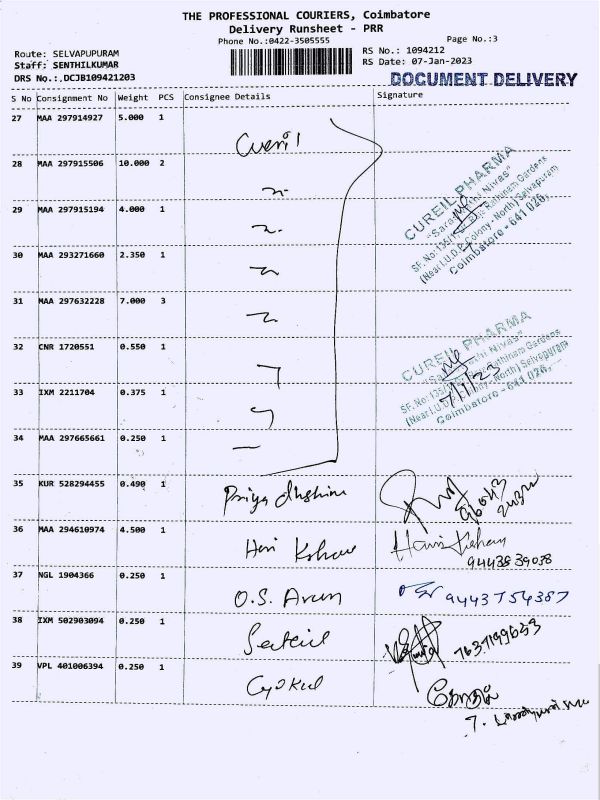 THE PROFESSIONAL COURIERS, Coimbatore
Delivery Runsheet - PRR
Phone No.:0422-3505555
Page No.:3
Route: SELVAPUPURAM
Staff: SENTHILKUMAR
DRS No.:.DCJB109421203
RS No.: 1094212
RS Date: 07-Jan-2023
DOCUMENT DELIVERY
S No Consignment No Weight PCS Consignee Details Signature
27 MAA 297914927 5.000 1
28 MAA 297915506 10.000 2
29 MAA 297915194 4.000 1
30 MAA 293271660 2.350 1
31 MAA 297632228 7.000 3
CUREIL PHARMA
"Saraswathi Nivas"
Rathinam Gardens
(Near I.U.D.P. Colony - North) Selvapuram
Coimbatore - 641 026,
32 CNR 1720551 0.550 1
33 IXM 2211704 0.375 1
34 MAA 297665661 0.250 1
CUREIL PHARMA
Rathinam Gardens
North) Selvapuram
Coimbatore - 641 026,
7/1/23
35 KUR 528294455 0.490 1 Priya
36 MAA 294610974 4.500 1 Hari
9443839038
37 NGL 1904366 0.250 1 O.S. Arun 9443754387
38 IXM 502903094 0.250 1 7637199633
39 VPL 401006394 0.250 1 Gokul